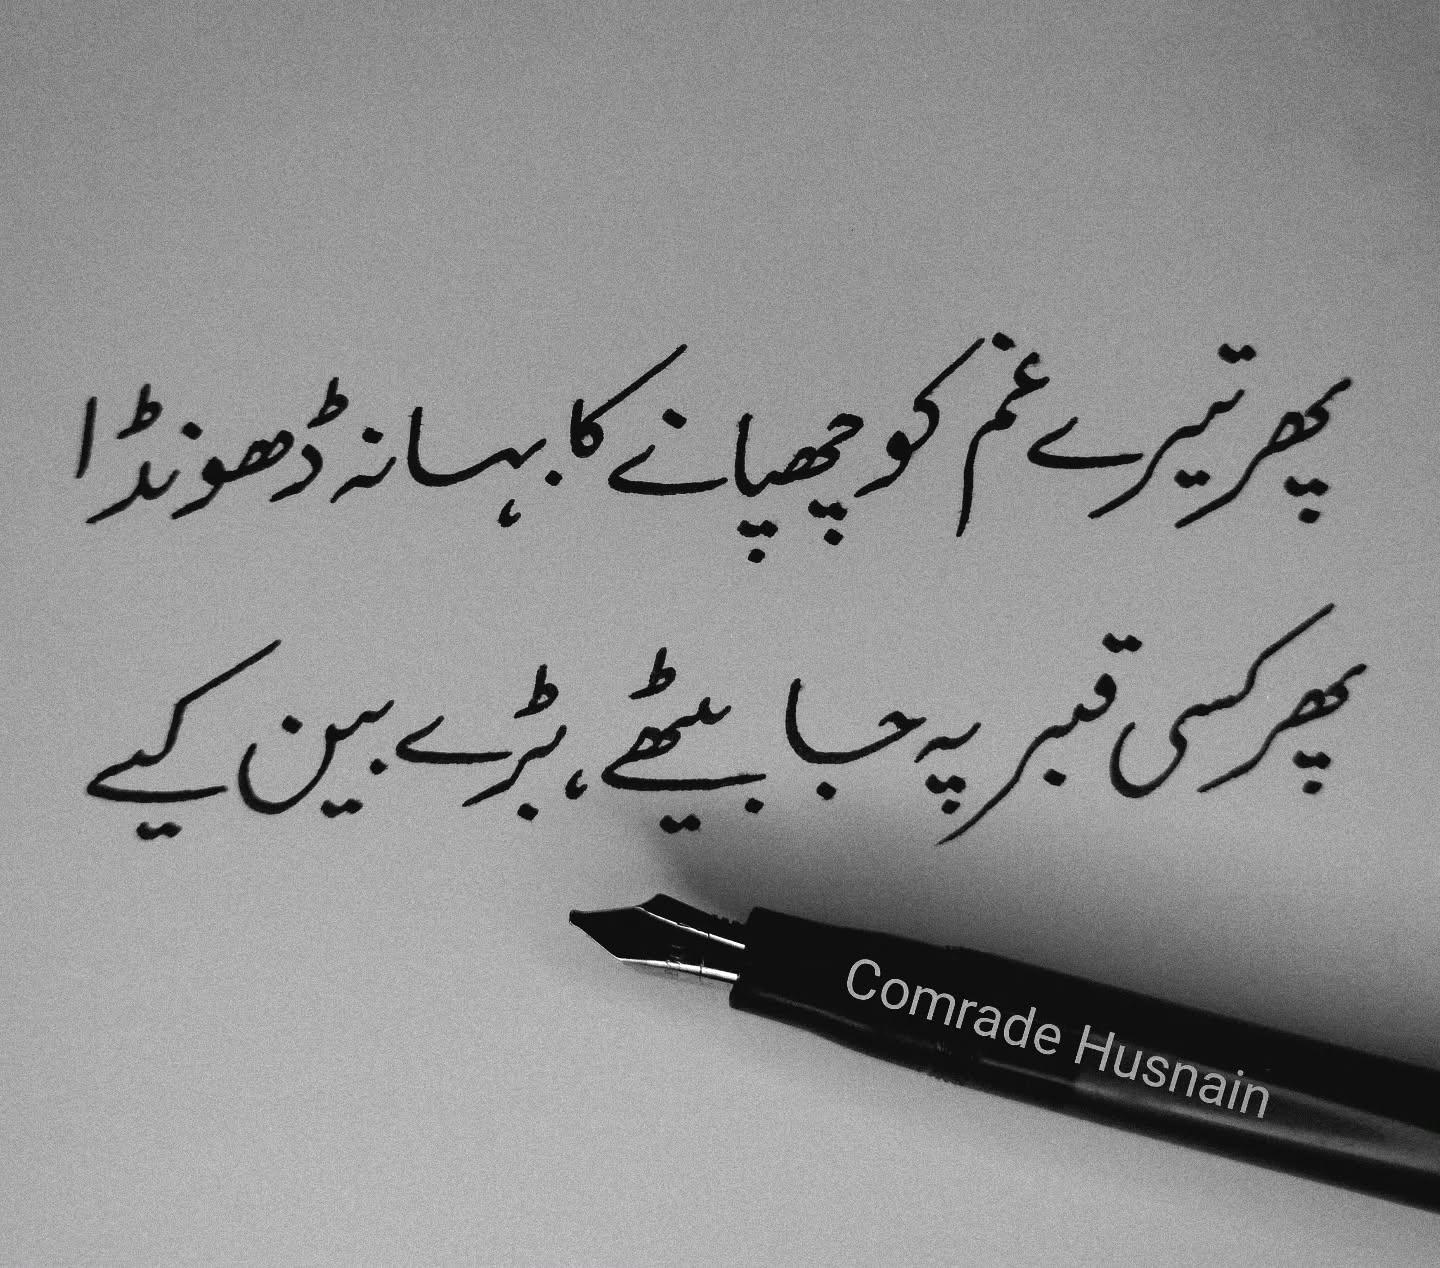 پھر تیرے غم کو چھپانے کا بہانہ ڈھونڈا
پھر کسی قبر پہ جا بیٹھے، بڑے بین کیے
Comrade Husnain